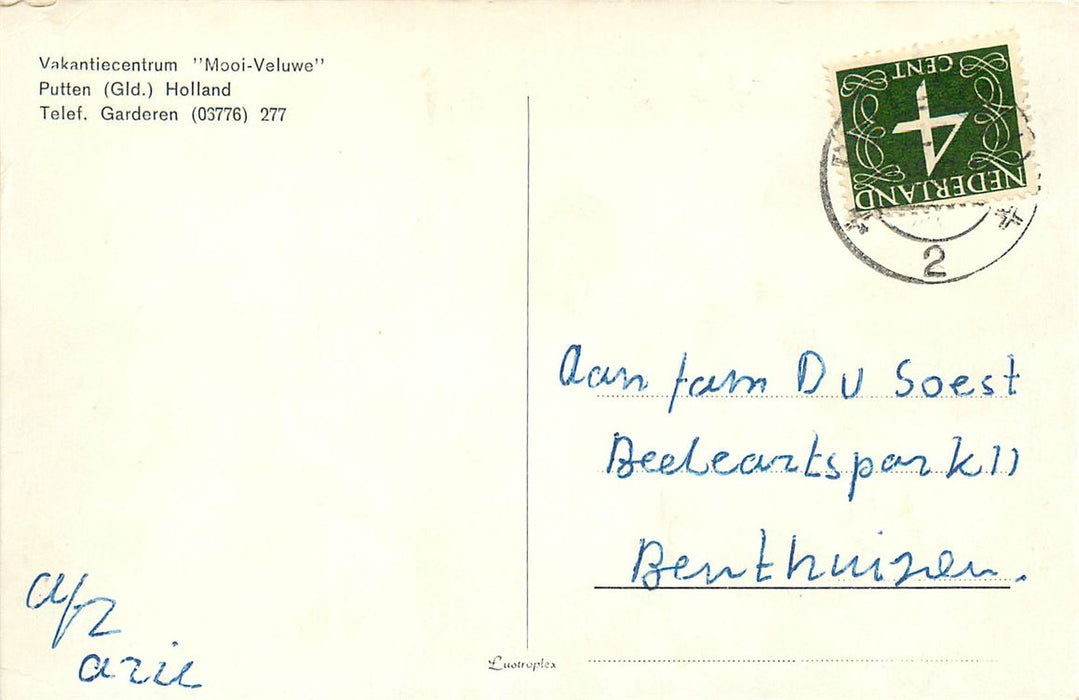 Vakantiecentrum "Mooi-Veluwe"
Putten (Gld.) Holland
Telef. Garderen (03776) 277
CENT
4
NEDERLAND
2
Aan fam D v Soest
Beeleartspark 11
Benthuizen.
afz
arie
Lustroplex